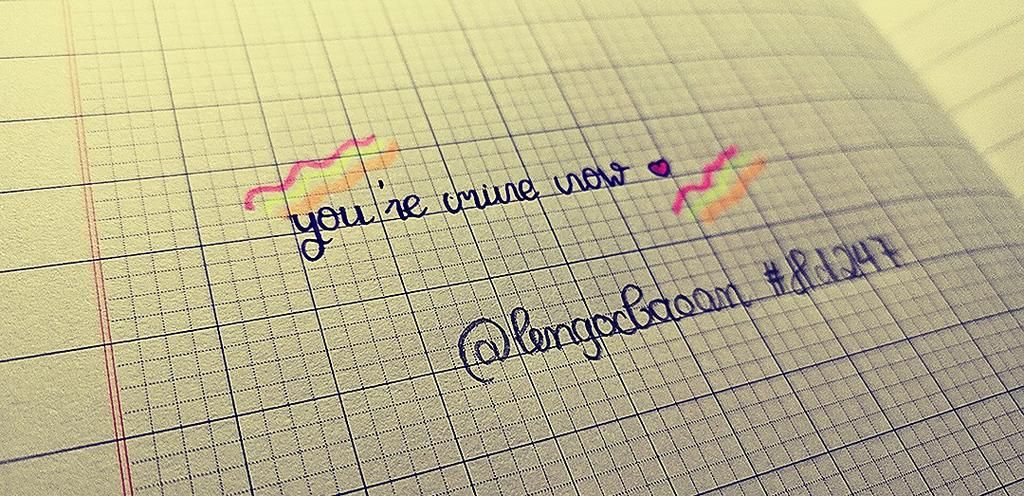 you're mine now ♥
@lengocbaoan #8.1247